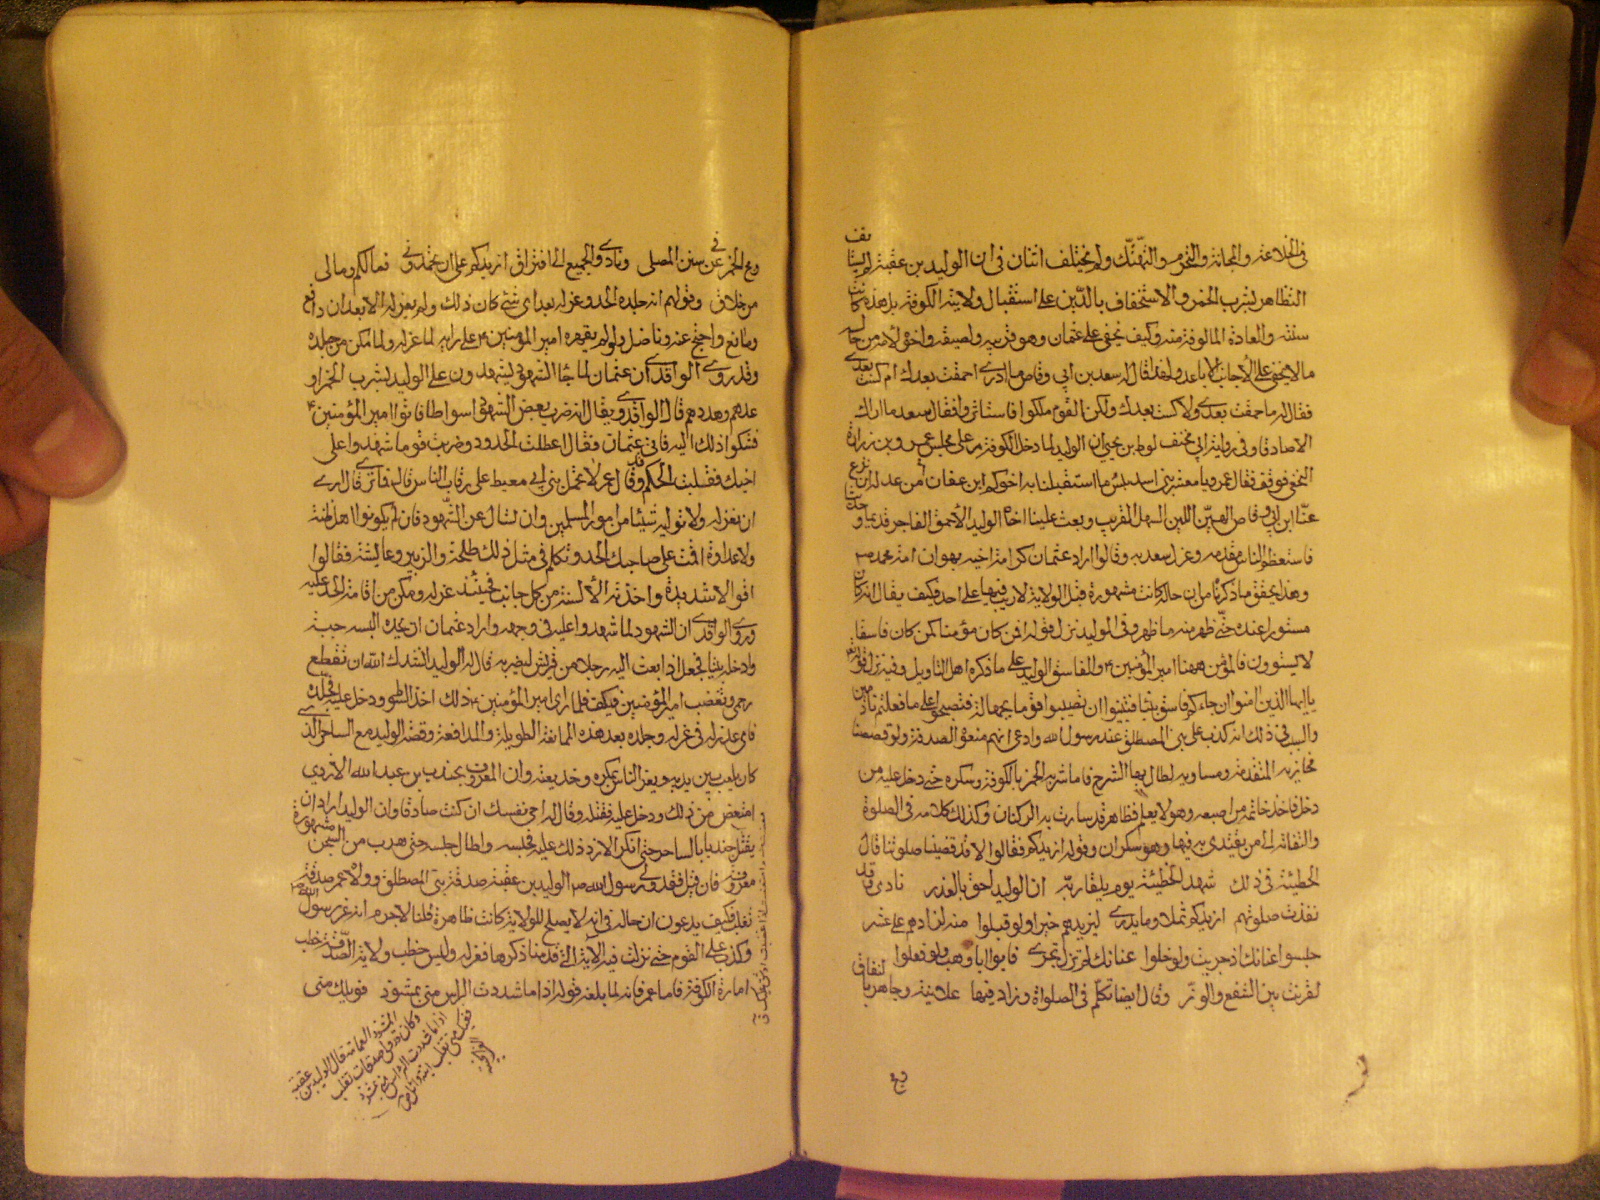 في الخلاعة والمجانة والتخرم والتهتك ولم يختلف اثنان في ان الوليد بن عقبة لم يستانف
التظاهر بشرب الخمر والاستخفاف بالدين على استقبال ولايته الكوفة بل هذه كانت
سنته والعادة المالوفة منه وكيف يخفى على عثمان وهو قريبه ولصيقه واخوه لامه من حاله
ما لا يخفى على الاجانب الاباعد ولهذا قال له سعد بن ابي وقاص ما ادري احمقت بعدك ام كست بعدي
فقال له ما حمقت بعدي ولا كست بعدك ولكن القوم ملكوا فاستاثروا فقال سعد ما اراك
الا صادقا وفي رواية ابي مخنف لوط بن يحيى ان الوليد لما دخل الكوفة مر على مجلس عمرو بن زرارة
النخعي فوقف فقال عمرو يا معشر بني اسد بئس ما استقبلنا به اخوكم ابن عفان أمن عدله ان ينزع
عنا ابن ابي وقاص الهين اللين السهل القريب وبعث علينا اخاه الوليد الاحمق الفاجر قديما وحديثا
فاستعظم الناس مقدمه وعزل سعد به وقالوا اراد عثمان كرامة اخيه بهوان امة محمد ص
وهذا يحقق ما ذكرناه من ان حاله كانت مشهورة قبل الولاية لا ريب فيها على احد فكيف يقال انه كان
مستورا عنده حتى ظهر منه ما ظهر وفي الوليد نزل قوله افمن كان مؤمنا كمن كان فاسقا
لا يستوون فالمؤمن ههنا امير المؤمنين ع والفاسق الوليد على ما ذكره اهل التاويل وفيه نزل قوله تعالى
يا ايها الذين امنوا ان جاءكم فاسق بنبا فتبينوا ان تصيبوا قوما بجهالة فتصبحوا على ما فعلتم نادمين
والسبب في ذلك انه كذب على بني المصطلق عند رسول الله وادعى انهم منعوه الصدقة ولو قصصنا
مخازيه المتقدمة ومساويه لطال بها الشرح فاما شربه الخمر بالكوفة وسكره حتى دخل عليه من
دخل فاخذ خاتمه من اصبعه وهو لا يعلم فظاهر قد سارت به الركبان وكذلك كلامه في الصلوة
والتفاته الى من يقتدي به فيها وهو سكران وقوله ازيدكم فقالوا لا قد قضينا صلوتنا قال
الحطيئة في ذلك شهد الحطيئة يوم يلقى ربه ان الوليد احق بالعذر نادى وقد
نفدت صلوتهم ازيدكم ثملا وما يدري ليزيدهم خيرا ولو قبلوا منه لزادهم على عشر
حبسوا عنانك اذ جريت ولو خلوا عنانك لم تزل تجري فابوا ابا وهب ولو فعلوا
لقرنت بين الشفع والوتر وقال ايضا تكلم في الصلواة وزاد فيها علانية وجاهر بالنفاق
ومج
ومج الخمر في عن سنن المصلى ونادى والجميع الى افتراق ازيدكم على ان تحمدوني فما لكم وما لي
من خلاق وقولهم انه جلده الحد وعزله بعد اي شيء كان ذلك ولم يعزله الا بعد ان دافع
ومانع واحتج عنه وناضل ولو لم يقهره امير المؤمنين ع على رايه لما عزله ولما مكن من جلده
وقد روى الواقدي ان عثمان لما جاءه الشهود يشهدون على الوليد بشرب الخمر او
عدهم وهددهم قال الواقدي ويقال انه ضرب بعض الشهود اسواطا فاتوا امير المؤمنين ع
فشكوا ذلك اليه فاتى عثمان فقال عطلت الحدود وضربت قوما شهدوا على
اخيك فقلبت الحكم وقد قال عمر لا تحمل بني ابي معيط على رقاب الناس قال له فما ترى قال ارى
ان تعزله ولا توليه شيئا من امور المسلمين وان تسال عن الشهود فان لم يكونوا اهل ظنة
ولا عداوة اقمت على صاحبك الحد وتكلم في مثل ذلك طلحة والزبير وعائشة فقالوا
اقوالا شديدة واخذته الالسنة من كل جانب فحينئذ عزله ومكن من اقامة الحد عليه
وروى الواقدي ان الشهود لما شهدوا عليه في وجهه واراد عثمان ان يحده البسه جبة
وادخله بيتا فجعل اذا بعث اليه رجلا من قريش ليضربه قال له الوليد انشدك الله ان تقطع
رحمي وتغضب امير المؤمنين فيكف فلما راى امير المؤمنين ع ذلك اخذ السوط ودخل عليه فجلده به
فاي عذر له في عزله وجلده بعد هذه الممانعة الطويلة والمدافعة وقصة الوليد مع الساحر الذي
كان يلعب بين يديه ويغر الناس بمكره وخديعته وان المعروف بجندب بن عبد الله الازدي
امتعض من ذلك ودخل عليه فقتله وقال له احي نفسك ان كنت صادقا وان الوليد اراد ان
يقتل جندبا بالساحر حتى انكر الازد ذلك عليه فحبسه واطال حبسه حتى هرب من السجن مشهورة
معروفة فان قيل فقد ولى رسول الله ص الوليد بن عقبة صدقة بني المصطلق وولاه عمر صدقة
تغلب فكيف يدعون ان حاله في انه لا يصلح للولاية كانت ظاهرة قلنا لا جرم انه غر رسول الله ص
وكذب على القوم حتى نزلت فيه الآية التي قدمنا ذكرها فعزله وليس خطب ولاية الصدقة خطب
امارة الكوفة فاما عمر فانه لما بلغه قوله اذا ما شددت الراس مني بمشوذ فويلك مني
المشوذ العمامة قال الوليد بن عقبة
وكان قد ولي صدقات تغلب
اذا ما شددت الراس مني بمشوذ
فغيك مني تغلب ابنة وائل ص